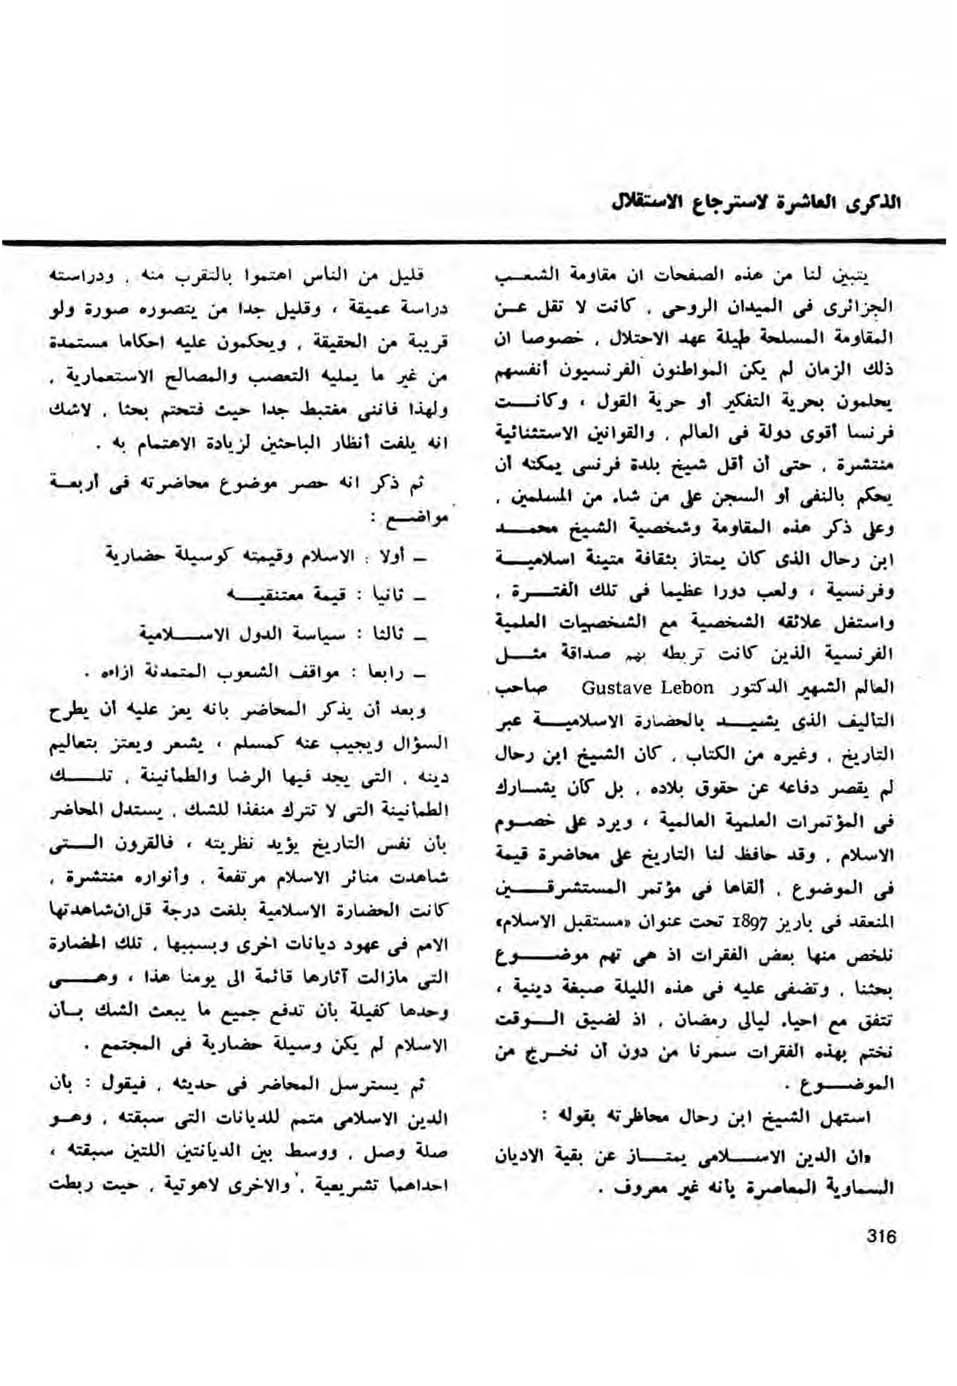 الذكرى العاشرة لاسترجاع الاستقلال
يتبين لنا من هذه الصفحات ان مقاومة الشعب
الجزائرى فى الميدان الروحى . كانت لا تقل عن
المقاومة المسلحة طيلة عهد الاحتلال . خصوصا ان
ذلك الزمان لم يكن المواطنون الفرنسيون أنفسهم
يحلمون بحرية التفكير أو حرية القول ، وكانت
فرنسا أقوى دولة فى العالم . والقوانين الاستثنائية
منتشرة . حتى أن أقل شيخ بلدة فرنسى يمكنه أن
يحكم بالنفى أو السجن على من شاء من المسلمين .
وعلى ذكر هذه المقاومة وشخصية الشيخ محمد
ابن رحال الذى كان يمتاز بثقافة متينة اسلامية
وفرنسية ، ولعب دورا عظيما فى تلك الفترة .
واستغل علائقه الشخصية مع الشخصيات العلمية
الفرنسية الذين كانت تربطه بهم صداقة مثل
العالم الشهير الدكتور Gustave Lebon صاحب
التاليف الذى يشيد بالحضارة الاسلامية عبر
التاريخ . وغيره من الكتاب . كان الشيخ ابن رحال
لم يقصر دفاعه عن حقوق بلاده . بل كان يشارك
فى المؤتمرات العلمية العالمية ، ويرد على خصوم
الاسلام . وقد حافظ لنا التاريخ على محاضرة قيمة
فى الموضوع . ألقاها فى مؤتمر المستشرقين
المنعقد فى باريز 1897 تحت عنوان «مستقبل الاسلام»
نلخص منها بعض الفقرات اذ هى تهم موضوع
بحثنا . وتضفى عليه فى هذه الليلة صبغة دينية ،
تتفق مع احياء ليالى رمضان . اذ لضيق الوقت
نختم بهذه الفقرات سمرنا من دون أن نخرج من
الموضوع .
استهل الشيخ ابن رحال محاظرته بقوله :
«ان الدين الاسلامى يمتاز عن بقية الاديان
السماوية المعاصرة بانه غير معروف .
قليل من الناس اهتموا بالتقرب منه . ودراسته
دراسة عميقة ، وقليل جدا من يتصوره صورة ولو
قريبة من الحقيقة . ويحكمون عليه احكاما مستمدة
من غير ما يمليه التعصب والمصالح الاستعمارية .
ولهذا فاننى مغتبط جدا حيث فتحتم بحثا . لاشك
انه يلفت أنظار الباحثين لزيادة الاهتمام به .
ثم ذكر انه حصر موضوع محاضرته فى أربعة
مواضع :
ــ أولا : الاسلام وقيمته كوسيلة حضارية
ــ ثانيا : قيمة معتنقيه
ــ ثالثا : سياسة الدول الاسلامية
ــ رابعا : مواقف الشعوب المتمدنة ازاءه .
وبعد أن يذكر المحاضر بانه يعز عليه أن يطرح
السؤال ويجيب عنه كمسلم ، يشعر ويعتز بتعاليم
دينه . التى يجد فيها الرضا والطمانينة . تلك
الطمأنينة التى لا تترك منفذا للشك . يستدل المحاضر
بأن نفس التاريخ يؤيد نظريته ، فالقرون التى
شاهدت منائر الاسلام مرتفعة . وأنواره منتشرة .
كانت الحضارة الاسلامية بلغت درجة قل ان شاهدتها
الامم فى عهود ديانات اخرى وبسببها . تلك الحضارة
التى مازالت آثارها قائمة الى يومنا هذا ، وهى
وحدها كفيلة بأن تدفع جميع ما يبعث الشك بان
الاسلام لم يكن وسيلة حضارية فى المجتمع .
ثم يسترسل المحاضر فى حديثه . فيقول : بأن
الدين الاسلامى متمم للديانات التى سبقته . وهو
صلة وصل . ووسط بين الديانتين اللتين سبقته ،
احداهما تشريعية . والاخرى لاهوتية . حيث ربطت
316